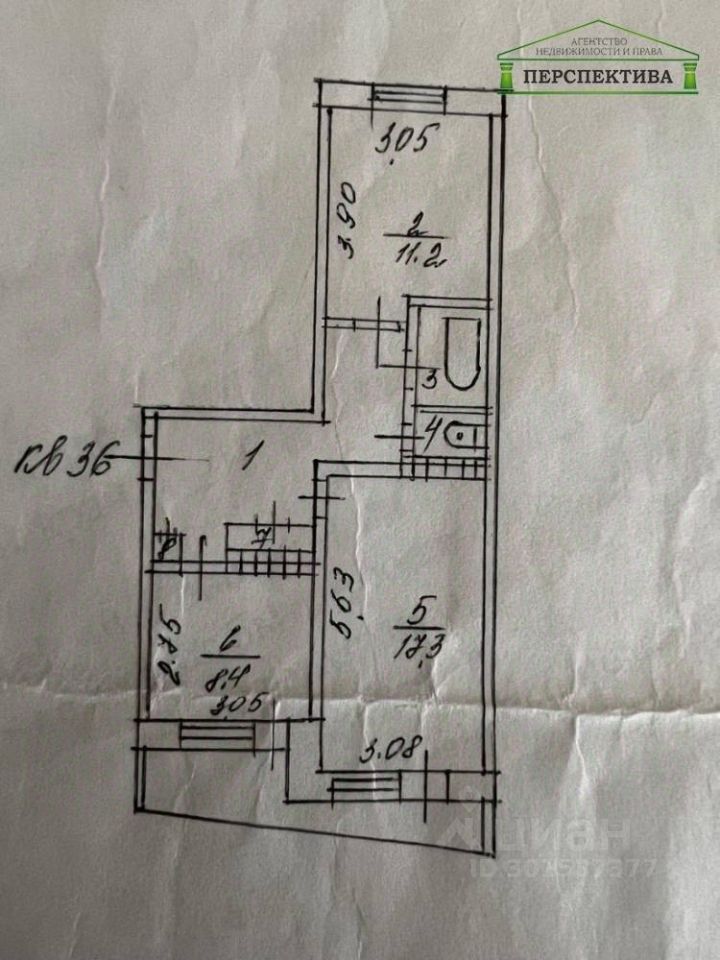 АГЕНТСТВО
НЕДВИЖИМОСТИ И ПРАВА
ПЕРСПЕКТИВА
3.05
3.90
2
11.2
3
4
кв 36
1
8
7
5.63
5
17.3
2.75
6
8.4
3.05
3.08
циан